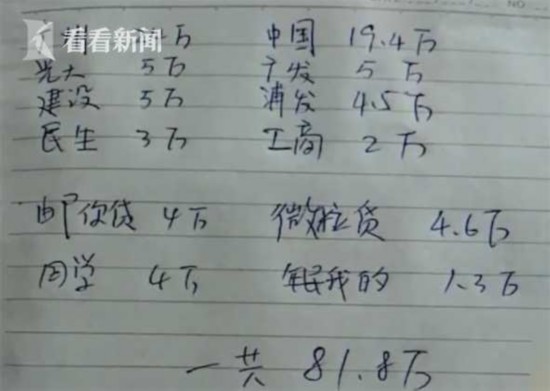 NO
看看新闻 万 中国 19.4万
光大 5万 广发 5万
建设 5万 浦发 4.5万
民生 3万 工商 2万
邮你贷 4万 微粒贷 4.6万
同学 4万 我的 1.3万
一共 81.8万